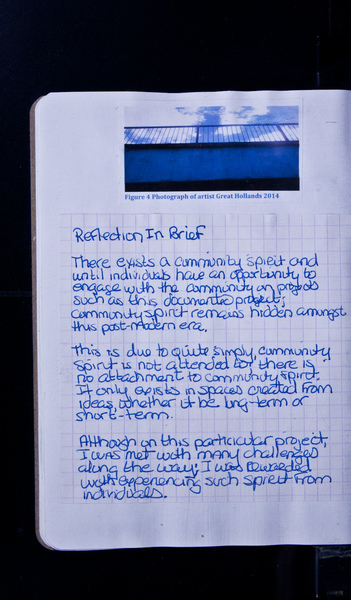 Figure 4 Photograph of artist Great Hollands 2014
Reflection In Brief
There exists a community spirit and
until individuals have an opportunity to
engage with the community on projects
such as this documented project;
community spirit remains hidden amongst
this post-modern era.
This is due to quite simply, community
spirit is not attended to for there is
no attachment to community spirit.
It only exists in spaces created from
ideas, whether it be long-term or
short-term.
Although on this particular project,
I was met with many challenges
along the way, I was rewarded
with experiencing such spirit from
individuals.